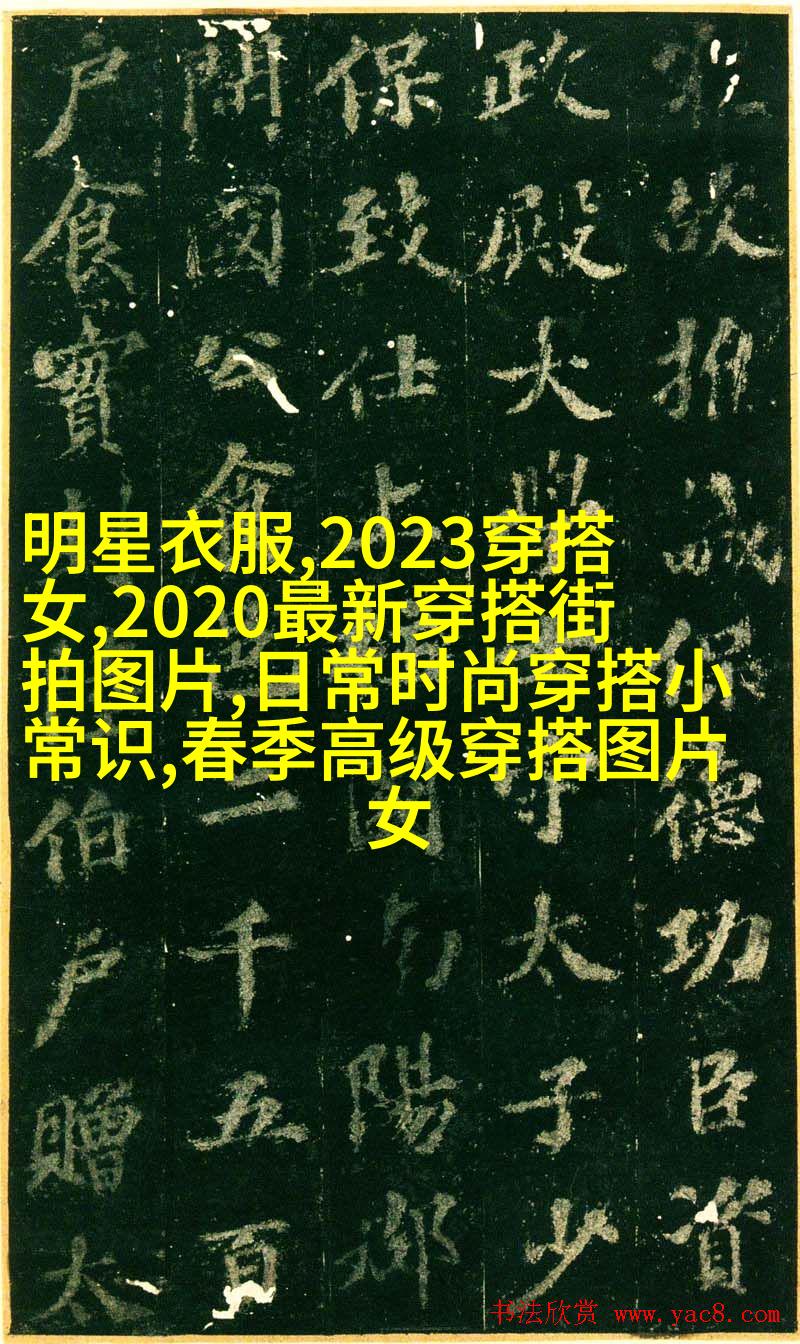 故推誠保德功臣資
政殿大太子少
保致仕上國陽郡
開國公食二千五百
户食實伯户贈太
明星衣服,2023穿搭
女,2020最新穿搭街
拍图片,日常时尚穿搭小
常识,春季高级穿搭图片
女
书法欣赏 www.yac8.com